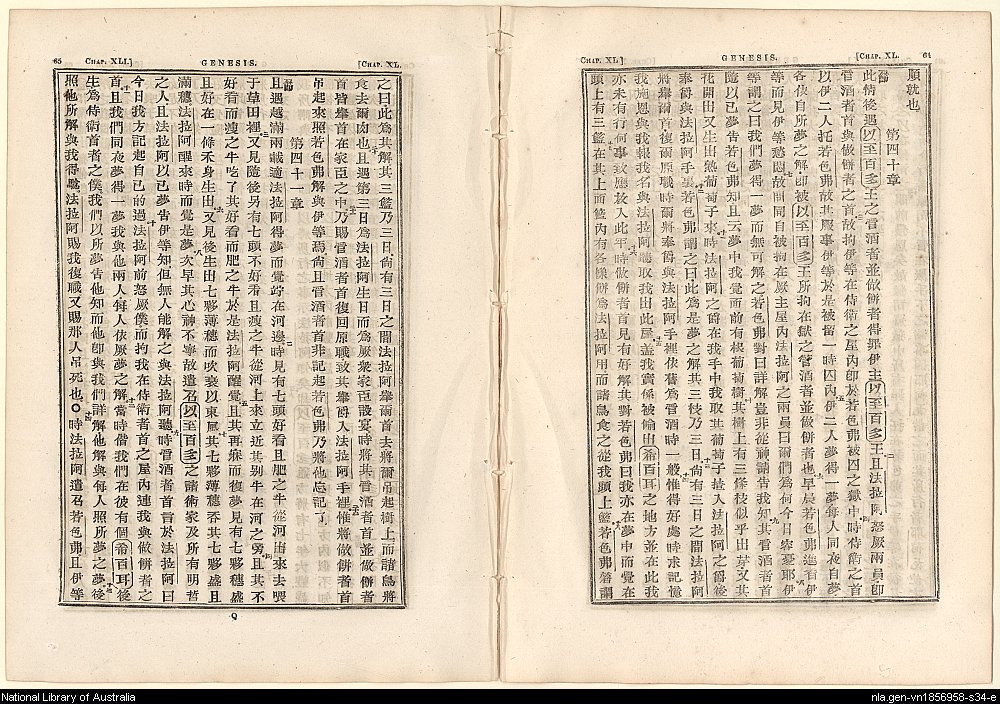 64
[CHAP. XL.
GENESIS.
CHAP. XL.]
順就也
第四十章
此情後遇以至百多王之管酒者並做餅者得罪伊主以至百多王且法拉阿怒厥兩員即
管酒者首與做餅者之首故拘伊等在侍衛之屋內即於若色弗被囚之獄中時侍衛之首
以伊二人托若色弗故其服事伊等於是被留一時囚內伊二人夢得一夢每人同夜自夢
各依自所夢之解即被以至百多王所拘在獄之管酒者並做餅者也早晨若色弗進看伊
等而見伊等愁悶故問同自被拘在厥主屋內法拉阿之兩員曰爾們為何今日容憂耶伊
等謂之曰我們夢得一夢而無可解之若色弗對曰詳解豈非從神請告我知其管酒者首
隨以己夢告若色弗知且云夢中我覺而前有根葡萄樹其樹上有三條枝似乎出芽又其
花開出又生出熟葡萄子來時法拉阿之爵在我手中我取其葡萄子搾入法拉阿之爵後
奉爵與法拉阿手裏若色弗謂之曰此為是夢之解其三枝乃三日尚有三日之間法拉阿
將舉爾首復爾原職時爾將奉爵與法拉阿手裡依舊為管酒時一般惟得好處時求記憶
我施恩與我報我名與法拉阿聽取我出此屋蓋我實係被偷出希百耳之地方並在此我
亦未有行何事致應放入此牢時做餅者首見有好解其對若色弗曰我亦在夢中而覺在
頭上有三籃在其上面籃內有各樣餅為法拉阿用而諸鳥食之從我頭上籃若色弗答謂
[CHAP. XL.
GENESIS.
CHAP. XLI.]
65
之曰此為其解其三籃乃三日尚有三日之間法拉阿舉爾首去將爾吊起樹上而諸鳥將
食去爾肉也且遇第三日為法拉阿生日而為厥眾家臣設宴時將其管酒者首並做餅者
首皆舉首在家臣之中乃賜管酒者首復回原職致其奉爵入法拉阿手裡惟將做餅者首
吊起來照若色弗解與伊等焉尚且管酒者首非記起若色弗乃將他忘記了
第四十一章
且遇越滿兩載適法拉阿得夢而覺竚在河邊時見有七頭好看且肥之牛從河出來去喂
于草田裡又見隨後另有七頭不好看且瘦之牛從河上來立近其別牛在河之旁且其不
好看而瘦之牛吃了其好看而肥之牛於是法拉阿醒覺且其再寐而復夢見有七夥穗盛
且好在一條禾身生出又見後生出七夥薄穗而吹衰以東風其七夥薄穗吞其七夥盛且
滿穗法拉阿醒來時而覺是夢次早其心神不寧故遣召以至百多之諸術家及所有明哲
之人且法拉阿以己夢告伊等知但無人能解之與法拉阿聽時管酒者首言於法拉阿曰
今日我方記起自己的過法拉阿前怒厥僕而拘我在侍衛者首之屋內連我與做餅者之
首且我們同夜夢得一夢我與他兩人每人依厥夢之解當時偕我們在彼有個希百耳後
生為侍衛首者之僕我們以所夢告他知而他即與我們詳解他解與每人照所夢之夢後
照他所解與我得職法拉阿賜我復職又賜那人吊死也○時法拉阿遣召若色弗且伊等
Q
National Library of Australia
nla.gen-vn1856958-s34-e